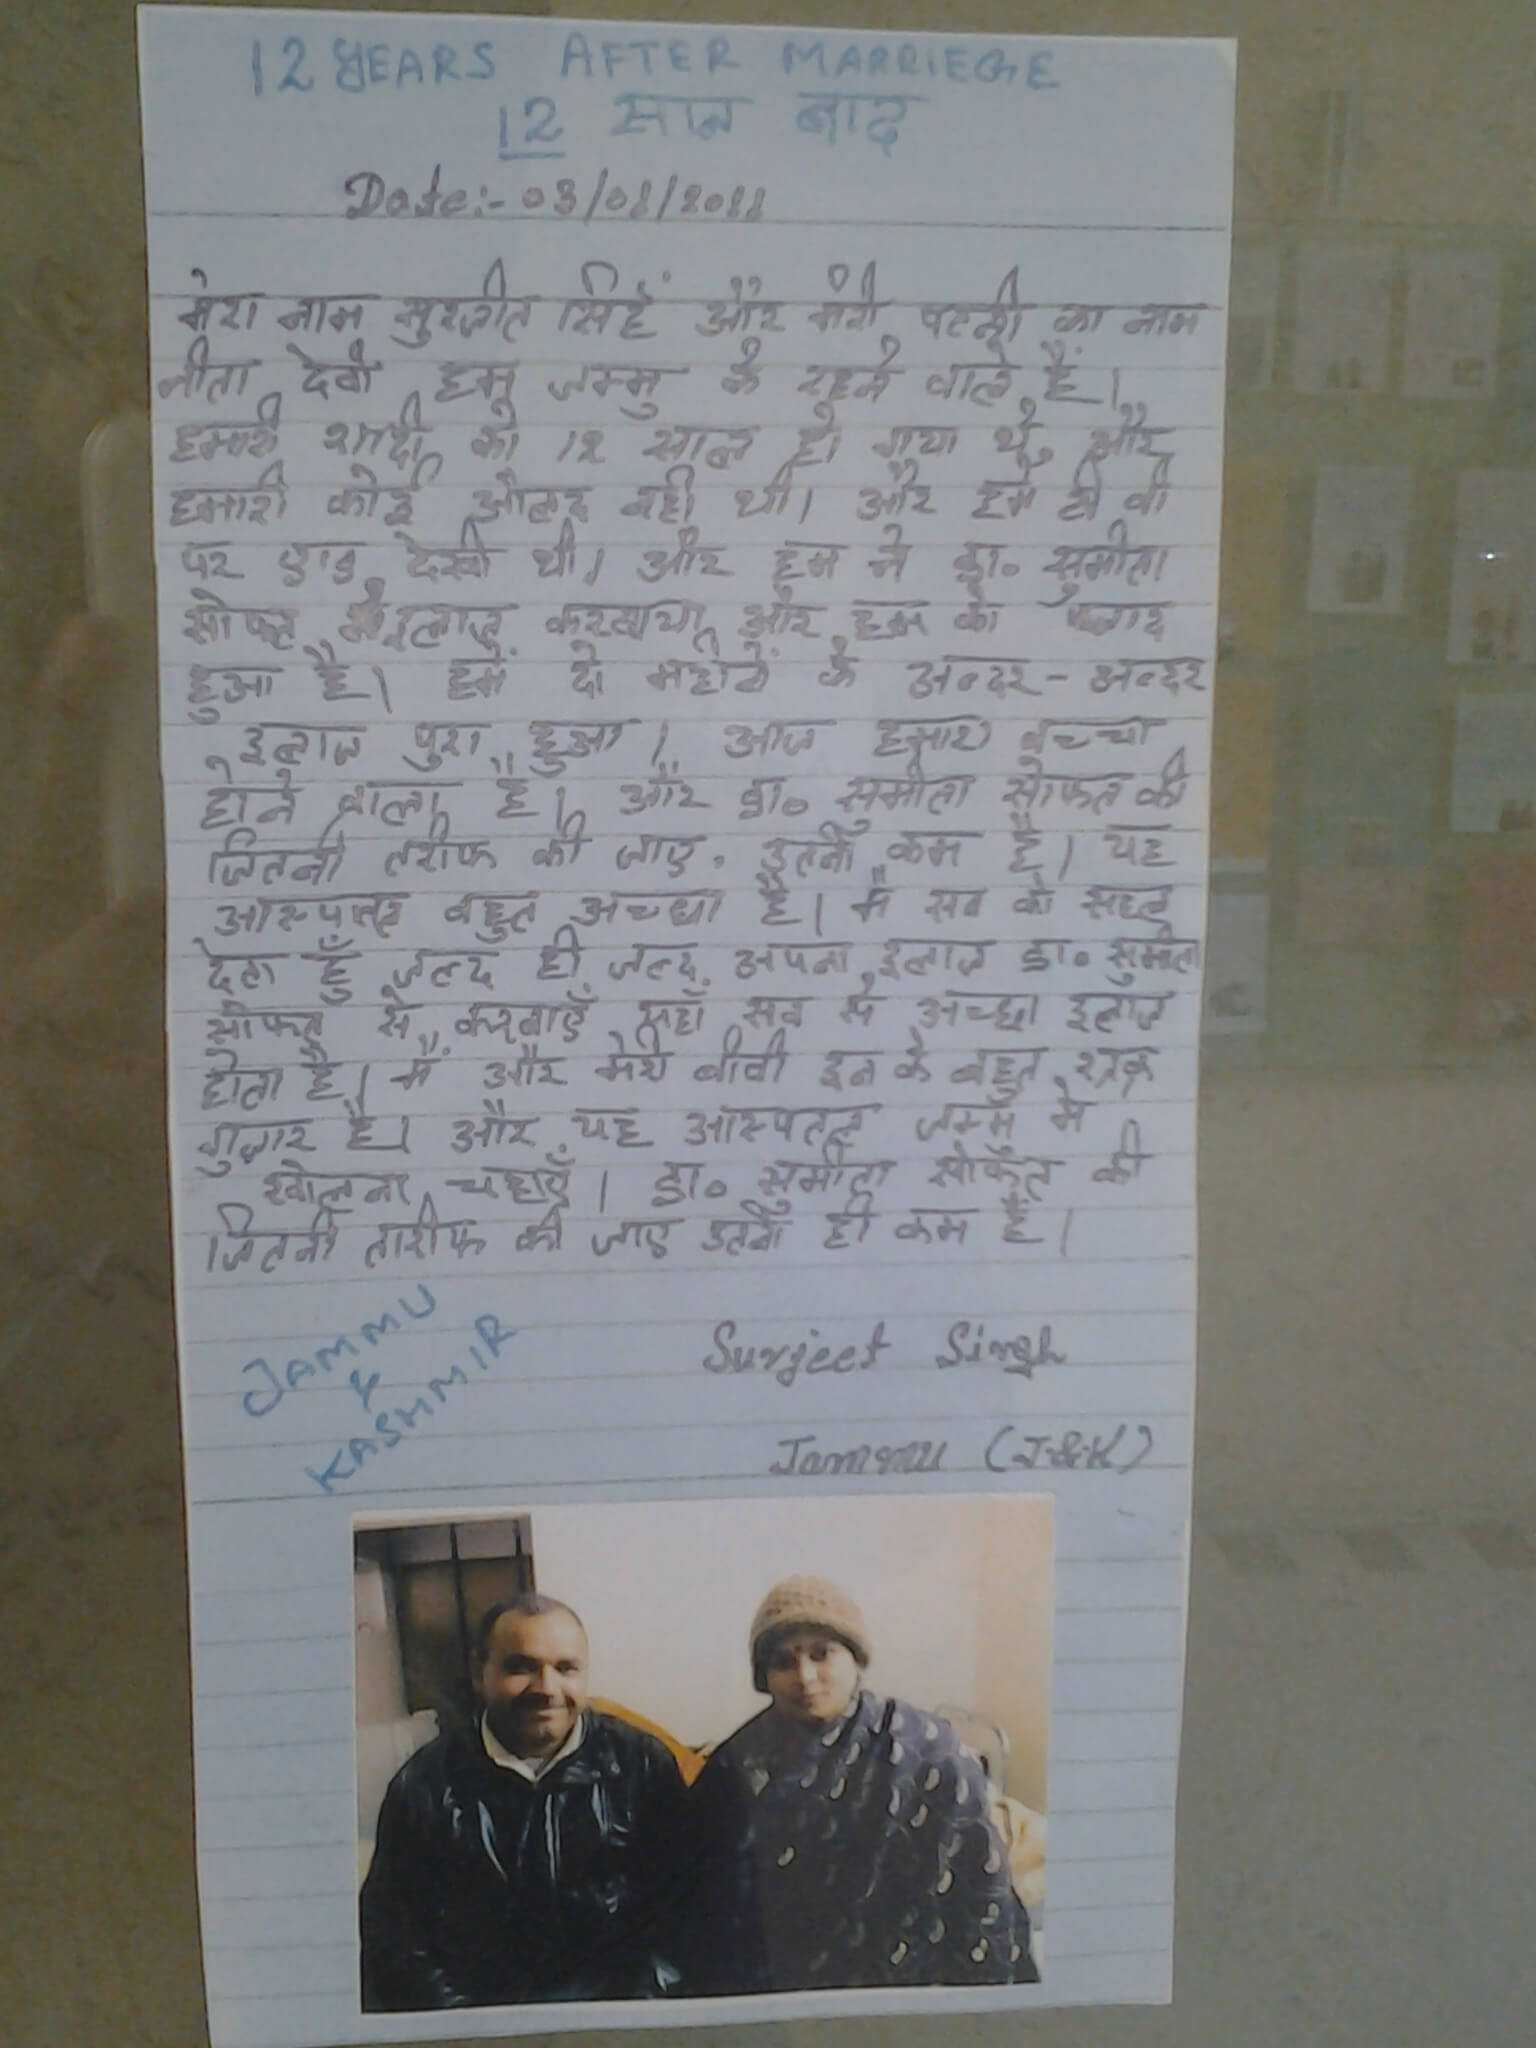 12 YEARS AFTER MARRIEGE
12 साल बाद
Date:- 03/01/2011
मेरा नाम सुरजीत सिहं और मेरी पत्नी का नाम
नीता देवी हम जम्मु के रहने वाले हैं।
हमारी शादी को 12 साल हो गया थे और
हमारी कोई औलद नही थी। और हमे टी वी
पर एड देखी थी। और हम ने डा॰ सुमीता
सोफत से इलाज करवाया और हम को
हुआ है। हमें दो महीनें के अन्दर - अन्दर
इलाज पुरा हुआ। आज हमारा बच्चा
होने वाला है। और डा॰ सुमीता सोफत की
जितनी तरीफ की जाए. इतनी कम है। यह
आस्पतल बहुत अच्छा है। मैं सब को सहल
देता हुँ जल्द ही जल्द अपना इलाज डा॰ सुमीता
सोफत से करवाएँ यहाँ सब से अच्छा इलाज
होता है। मैं और मेरी बीवी इन के बहुत शुक्र
गुजार है। और यह आस्पतल जम्मु मे
खोलना चहाएँ। डा॰ सुमीता सोफत की
जितनी तारीफ की जाए उतनी ही कम है।
JAMMU
&
KASHMIR
Surjeet Singh
Jammu (J&K)